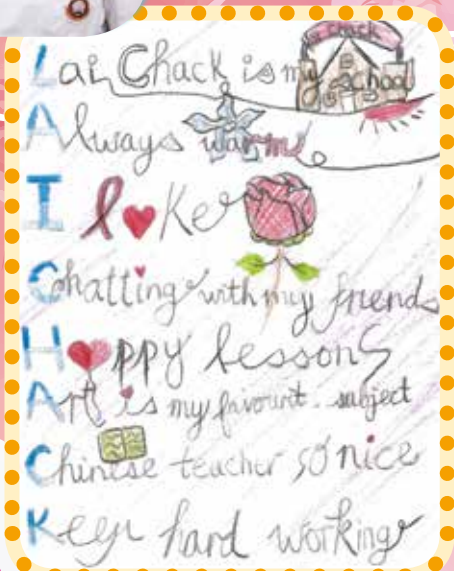 Lai Chack is my school
Always warm
I like
Chatting with my friends
Happy lessons
Art is my favourit subject
Chinese teacher so nice
Keep hard working